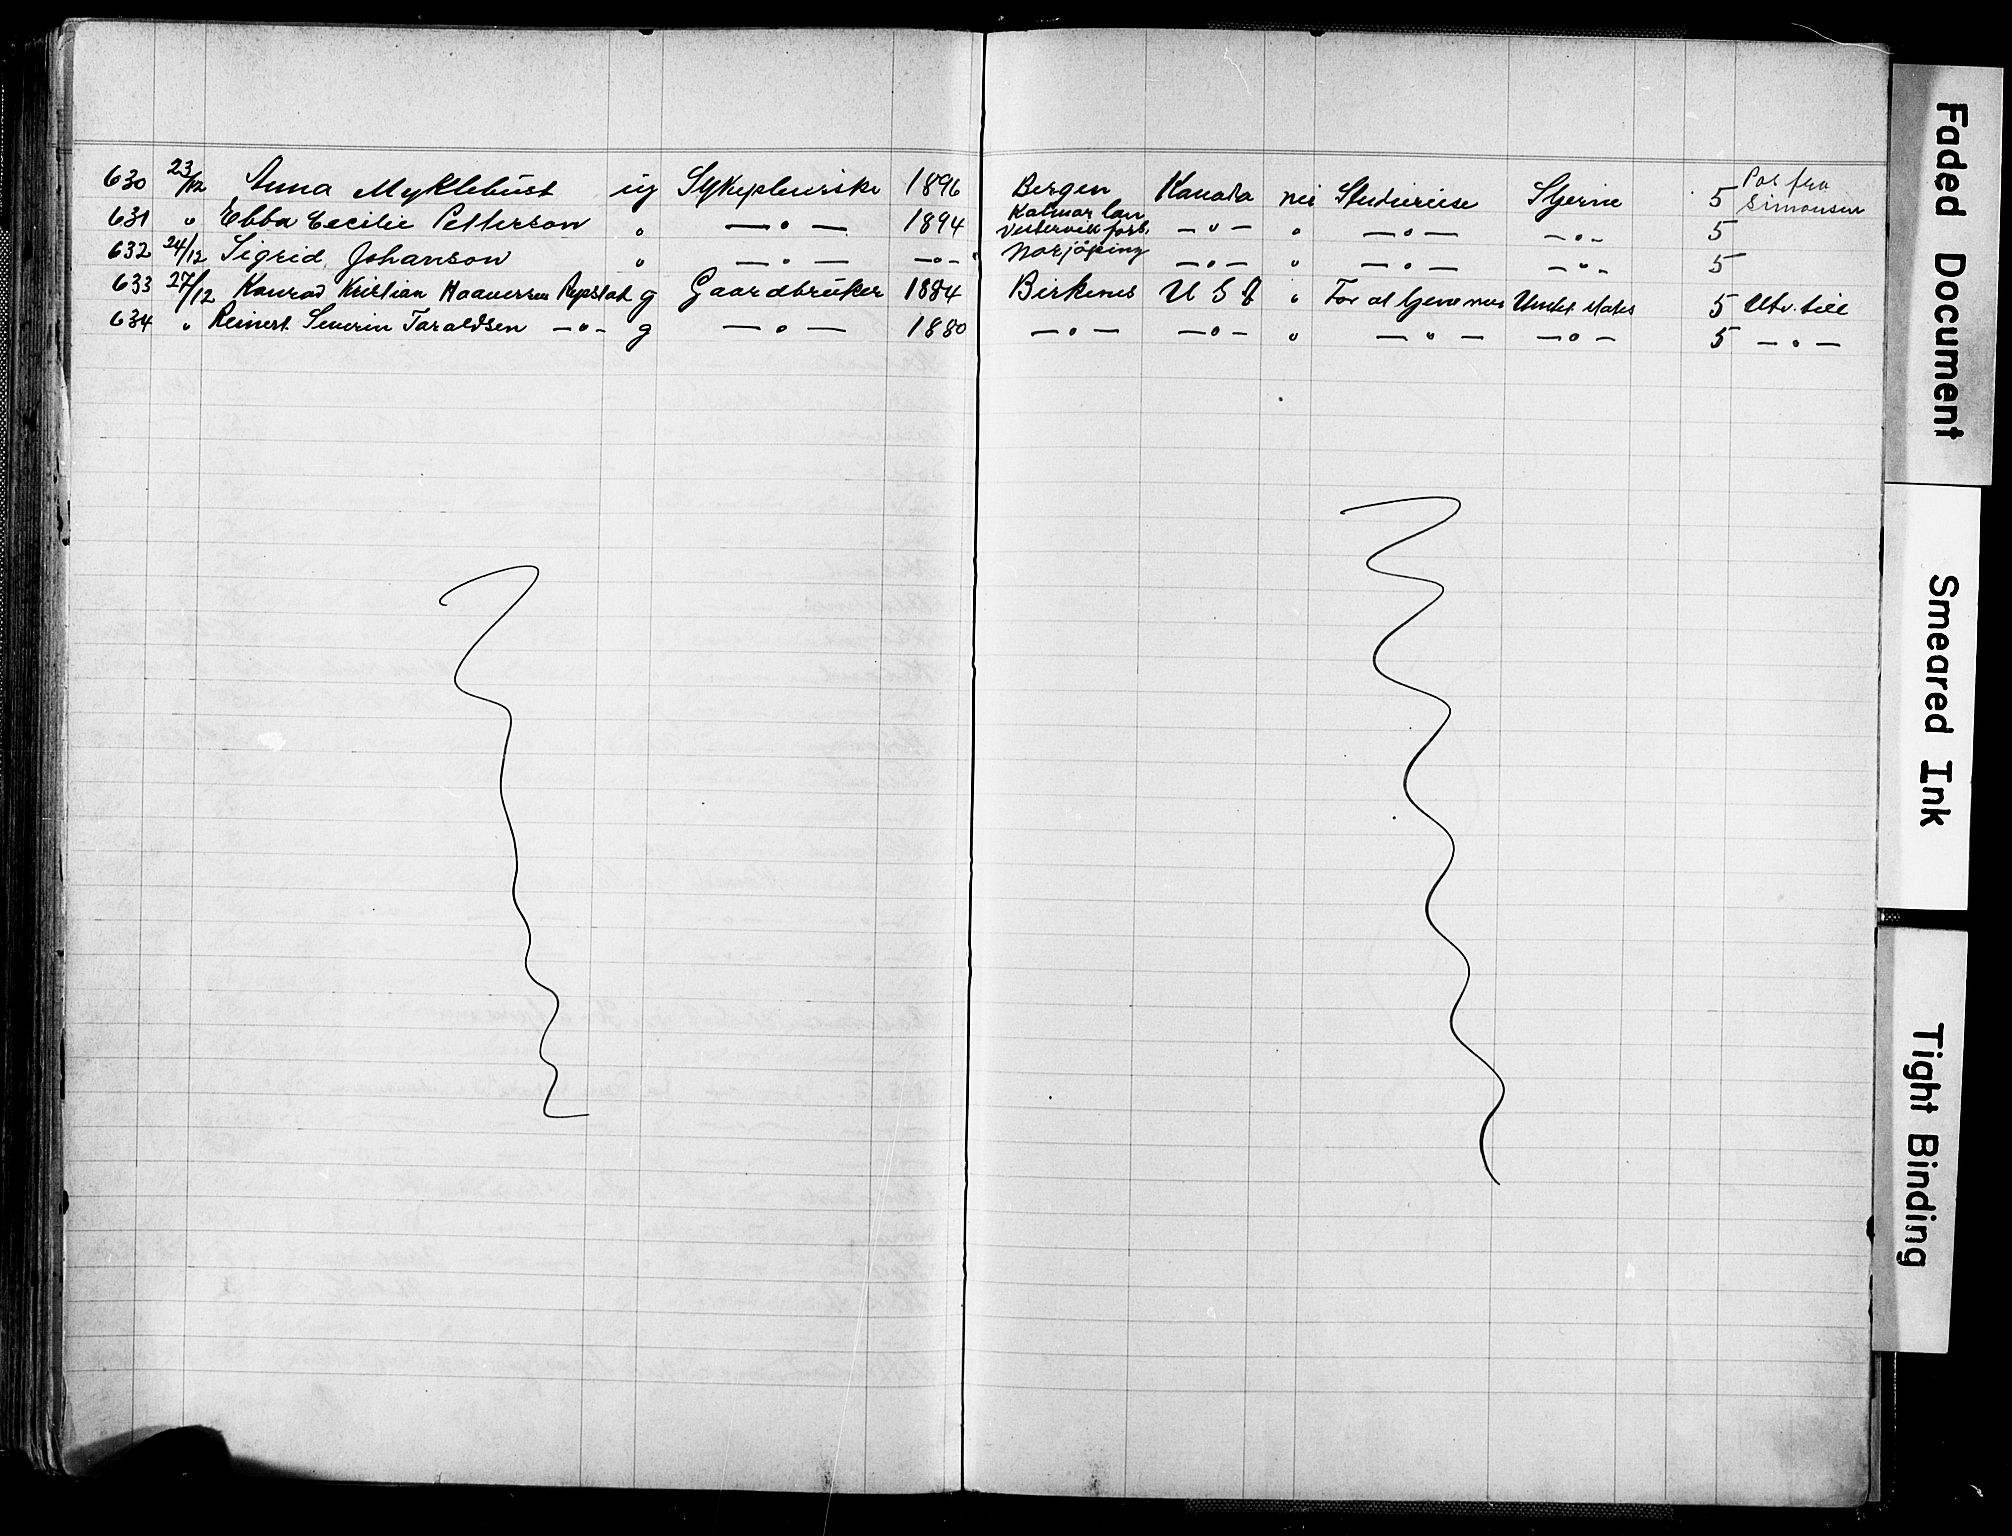 630 23/12 Anna Myklebust ug Sykepleierske 1896 Bergen Kanada nei Studiereise Stjerne 5 Pas fra Simonsen
631 " Ebba Cecilie Petterson " — " — 1894 Kalmar lan Vestervik forb. — " — " — " — — " — 5
632 24/12 Sigrid Johanson " — " — — " — " Norjøping — " — " — " — — " — 5
633 27/12 Konrad Kristian Haaversen Repstad g Gaardbruker 1884 Birkenes U S A " For at tjene mer Unitet States 5 Utv. till
634 " Reinert Severin Taraldsen — " — g — " — 1880 — " — — " — " — " — — " — 5 — " —
Faded Document
Smeared Ink
Tight Binding